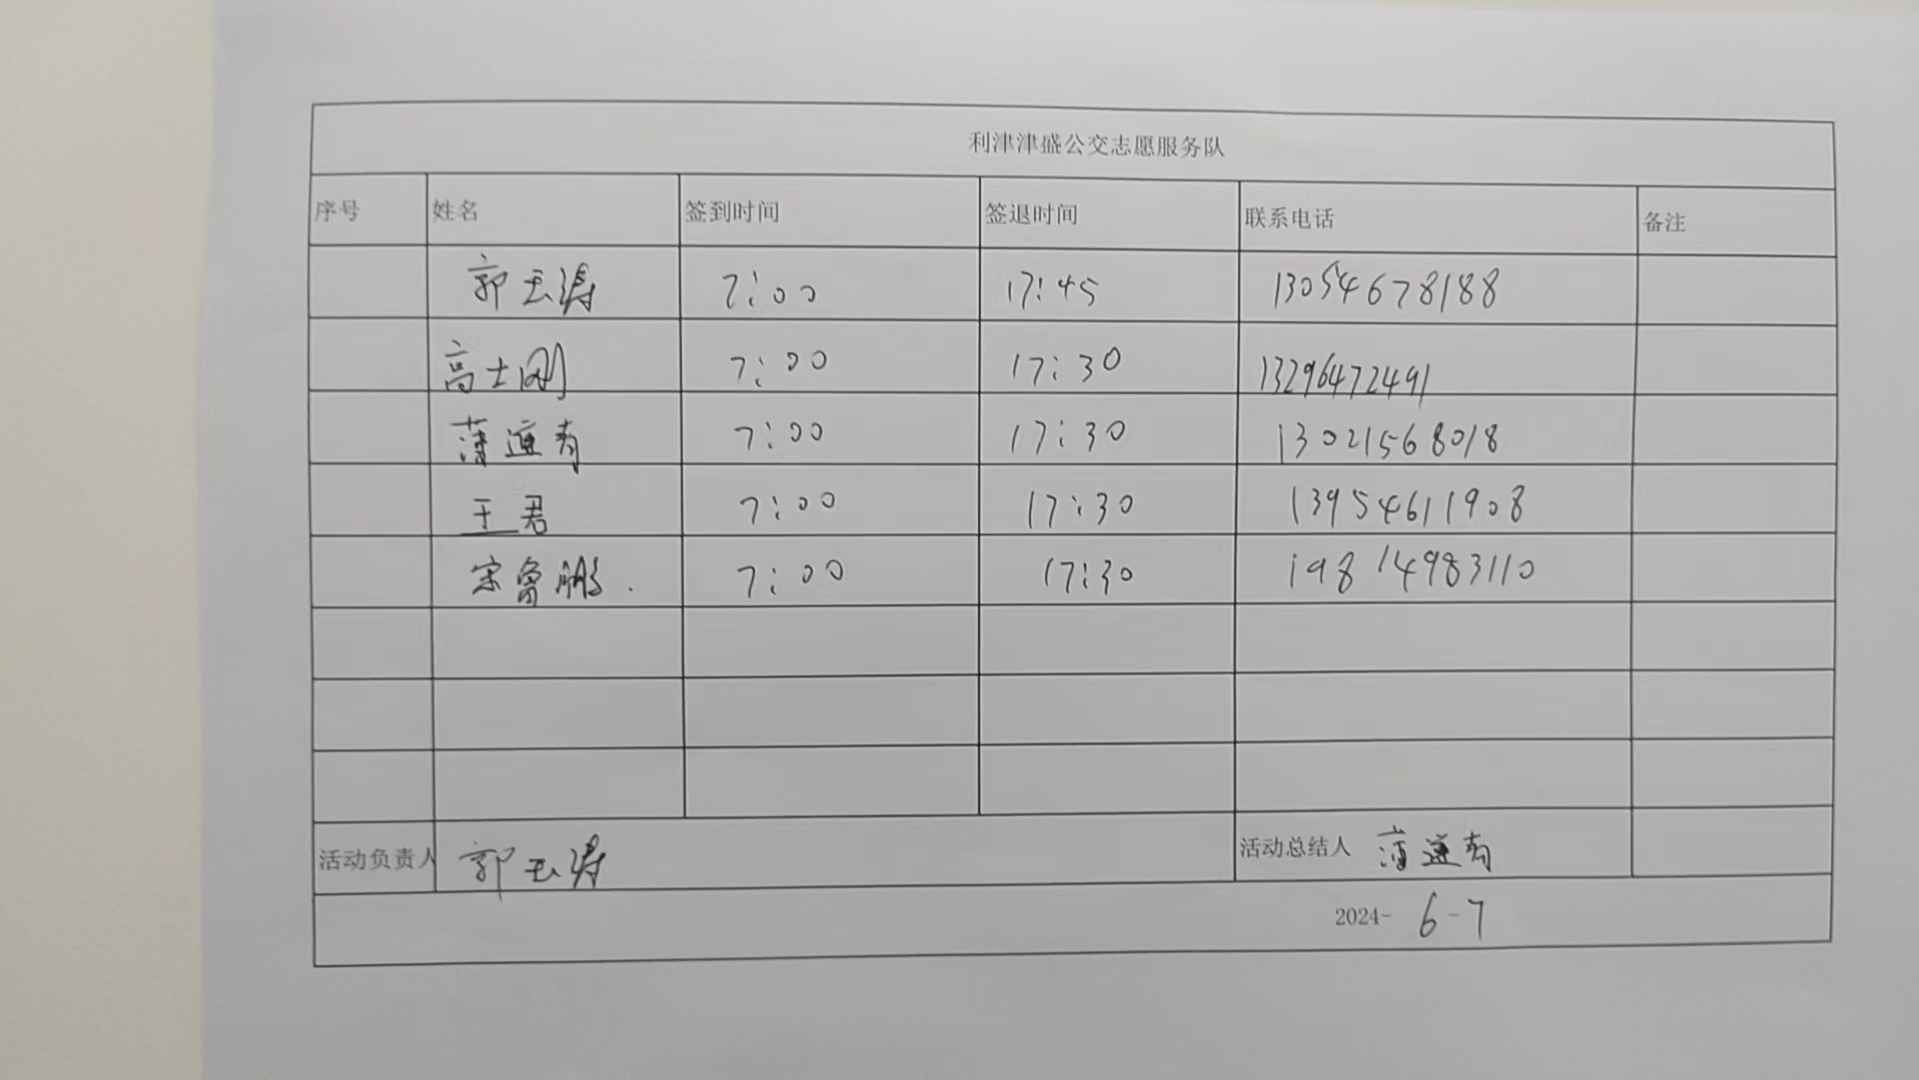 利津津盛公交志愿服务队
序号 姓名 签到时间 签退时间 联系电话 备注
郭玉涛 7:00 17:45 13054678188
高士刚 7:00 17:30 13296472491
薄连有 7:00 17:30 13021568018
王君 7:00 17:30 13954611908
宋鲁鹏. 7:00 17:30 19814983110
活动负责人 郭玉涛 活动总结人 薄连有
2024- 6-7